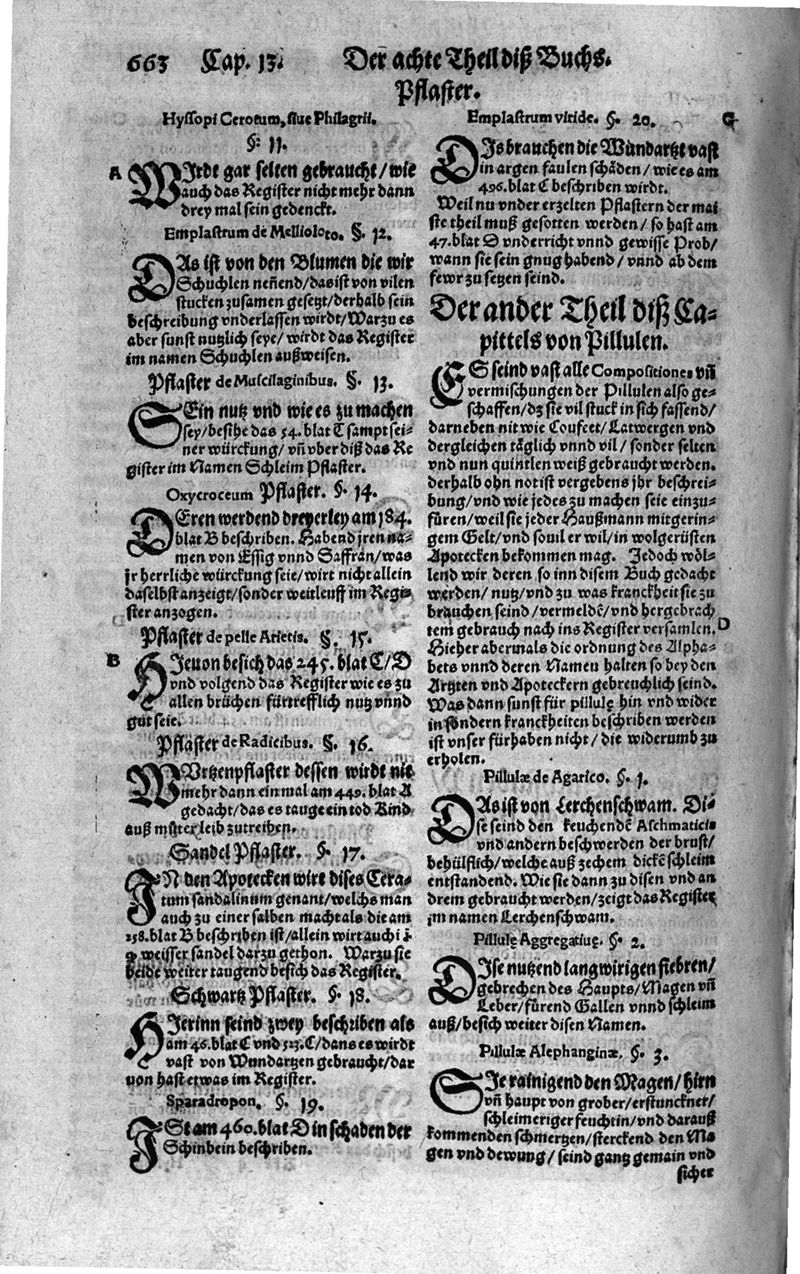 663 Cap. 13. Der achte Theil diß Buchs.
Pflaster.
Hyssopi Cerotum, siue Philagrii.
§. 11.
A WIrdt gar selten gebraucht/ wie
auch das Register nicht mehr dann
drey mal sein gedenckt.
Emplastrum de Melliloto. §. 12.
DAs ist von den Blumen die wir
Schuchlen neñend/das ist von vilen
stucken zusamen gesetzt/derhalb sein
beschreibung vnderlassen wirdt/Warzu es
aber sunst nutzlich seye/ wirdt das Register
im namen Schuchlen außweisen.
Pflaster de Muscilaginibus. §. 13.
SEin nutz vnd wie es zu machen
sey/besihe das 54. blat C sampt sei-
ner würckung/ vñ vber diß das Re
gister im Namen Schleim Pflaster.
Oxycroceum Pflaster. §. 14.
DEren werdend dreyerley am 184.
blat B beschriben. Habend jren na-
men von Essig vnnd Saffran/was
jr herrliche würckung seie/wirt nicht allein
daselbst anzeigt/sonder weitleuff im Regi-
ster anzogen.
Pflaster de pelle Arietis. §. 15.
B HIeuon besich das 245. blat C/D
vnd volgend das Register wie es zu
allen brüchen fürtrefflich nutz vnnd
gut seie.
Pflaster de Radicibus. §. 16.
WVrtzenpflaster dessen wirdt nit
mehr dann ein mal am 449. blat A
gedacht/das es tauge ein tod Kind
auß muter leib zutreiben.
Sandel Pflaster. §. 17.
IN den Apotecken wirt dises Cera-
tum sandalinum genant/welchs man
auch zu einer salben macht als die am
258. blat B beschriben ist/allein wirt auch
weisser sandel darzu gethon. Warzu sie
beide weiter taugend besich das Register.
Schwartz Pflaster. §. 18.
HIerinn seind zwey beschriben als
am 46. blat C vnd 513. C/dans es wirdt
vast von Wundartzen gebraucht/dar
von hast etwas im Register.
Sparadropon. §. 19.
ISt am 460. blat D in schaden der
Schinbein beschriben.
Emplastrum viride. §. 20. C
DIs brauchen die Wundartzt vast
in argen faulen schäden/ wie es am
496. blat C beschriben wirdt.
Weil nu vnder erzelten Pflastern der mai
ste theil muß gesotten werden/ so hast am
47. blat D vnderricht vnnd gewisse Prob/
wann sie sein gnug habend/ vnnd ab dem
fewr zu setzen seind.
Der ander Theil diß Ca-
pittels von Pillulen.
ES seind vast alle Compositiones vñ
vermischungen der Pillulen also ge-
schaffen/dz sie vil stuck in sich fassend/
darneben nit wie Confect/Latwergen vnd
dergleichen täglich vnnd vil/ sonder selten
vnd nun quintlen weiß gebraucht werden.
derhalb ohn not ist vergebens jhr beschrei-
bung/vnd wie jedes zu machen seie einzu-
füren/weil sie jeder Haußmann mit gerin-
gem Gelt/vnd souil er wil/in wolgerüsten
Apotecken bekommen mag. Jedoch wöl-
lend wir deren so inn disem Buch gedacht
werden/ nutz/vnd zu was kranckheit sie zu
brauchen seind/vermeldẽ/vnd hergebrach
tem gebrauch nach ins Register versamlen. D
Hieher abermals die ordnung des Alpha-
bets vnnd deren Namen halten so bey den
Artzten vnd Apoteckern gebreuchlich seind.
Was dann sunst für pillulę hin vnd wider
in sondern kranckheiten beschriben werden
ist vnser fürhaben nicht/ die widerumb zu
erholen.
Pillulæ de Agarico. §. 1.
DAs ist von Lerchenschwam. Di-
se seind den keuchendẽ Aschmaticis
vnd andern beschwerden der brust/
behülflich/welche auß zechem dickẽ schleim
entstandend. Wie sie dann zu disen vnd an
drem gebraucht werden/zeigt das Register
im namen Lerchenschwam.
Pillulę Aggregatiuę. §. 2.
DIse nutzend langwirigen fiebren/
gebrechen des Haupts/Magen vñ
Leber/fürend Gallen vnnd schleim
auß/besich weiter disen Namen.
Pillulæ Alephanginæ. §. 3.
SIe rainigend den Magen/hirn
vñ haupt von grober/erstunckner/
schleimeriger feuchtin/vnd darauß
kommenden schmertzen/sterckend den Ma
gen vnd dewung/ seind gantz gemain vnd
sicher